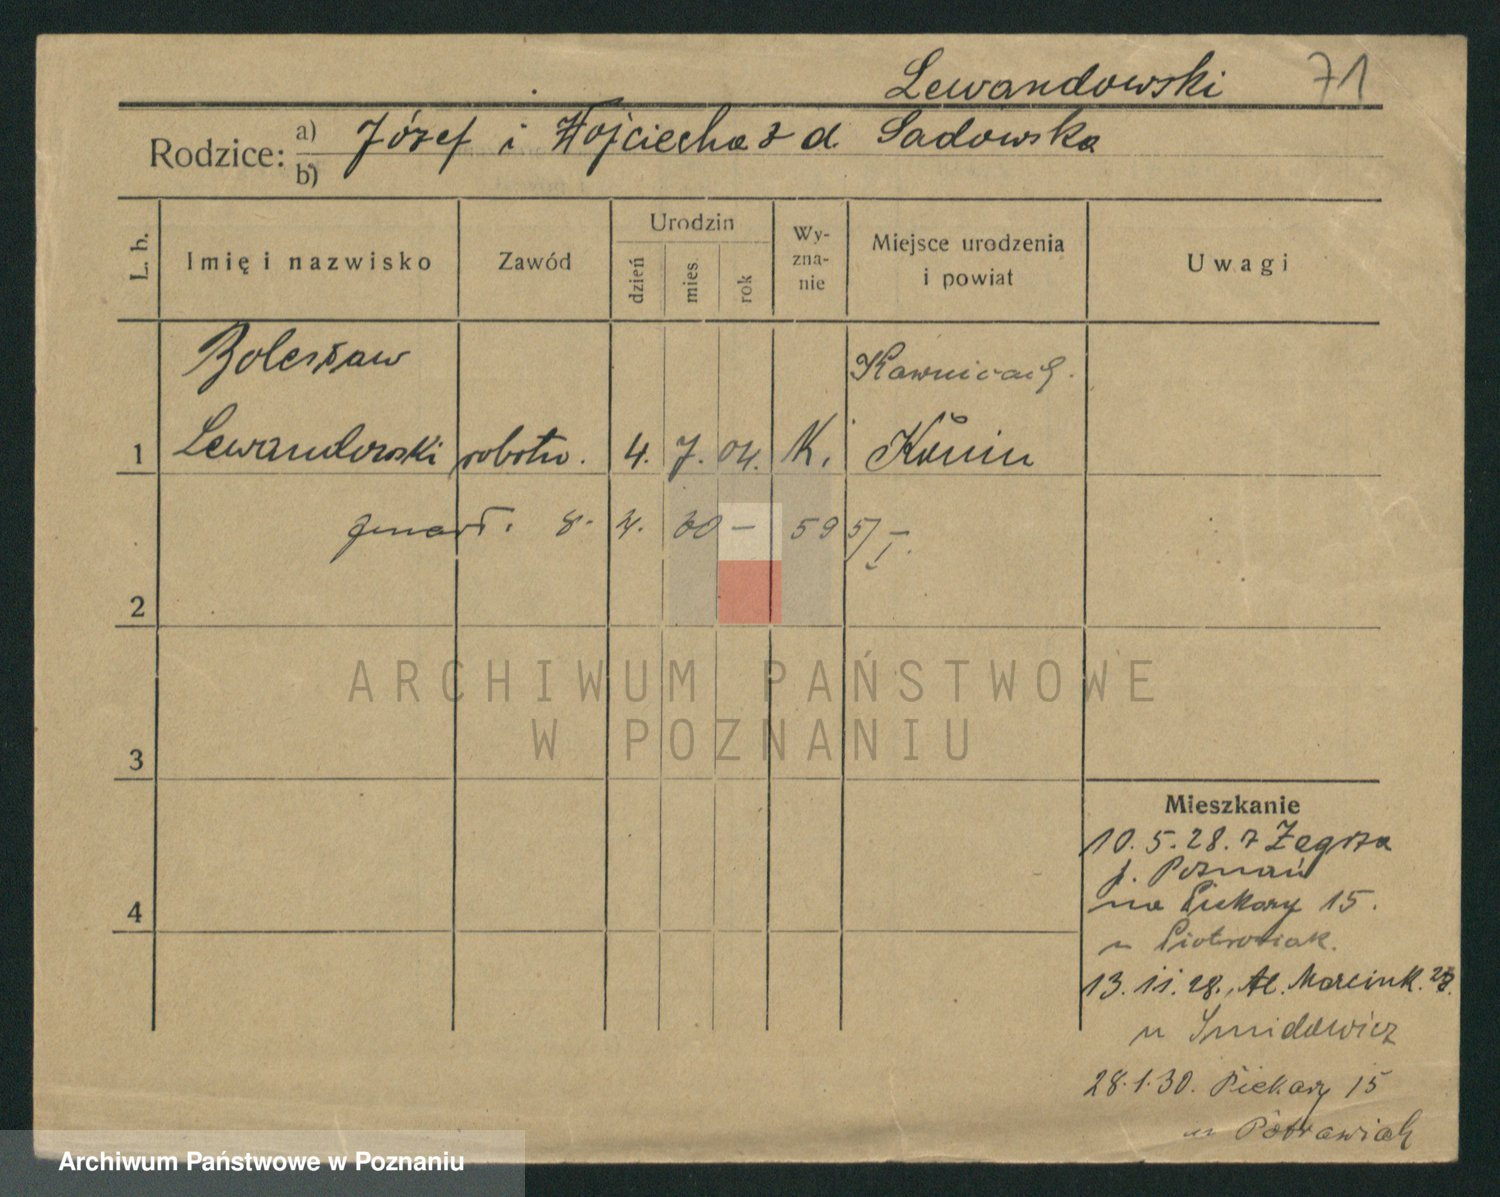 Lewandowski 71
Rodzice: a) Józef i Wojciecha z d. Sadowska
b)
L. b. Imię i nazwisko Zawód Urodzin dzień mies. rok Wy-zna-nie Miejsce urodzenia i powiat Uwagi
Bolesław Kawnicach.
1 Lewandowski robotn. 4. 7. 04. K. Konin
zmarł. 8. 4. 30 — 595/I.
2
ARCHIWUM PAŃSTWOWE
W POZNANIU
3
Mieszkanie
10. 5. 28. z Zegrza
p. Poznań
na Piekary 15.
4
u Piotrowiak.
13. 11. 28. Al. Marcink.
u Smidowicz
28. 1. 30. Piekary 15
u
Archiwum Państwowe w Poznaniu